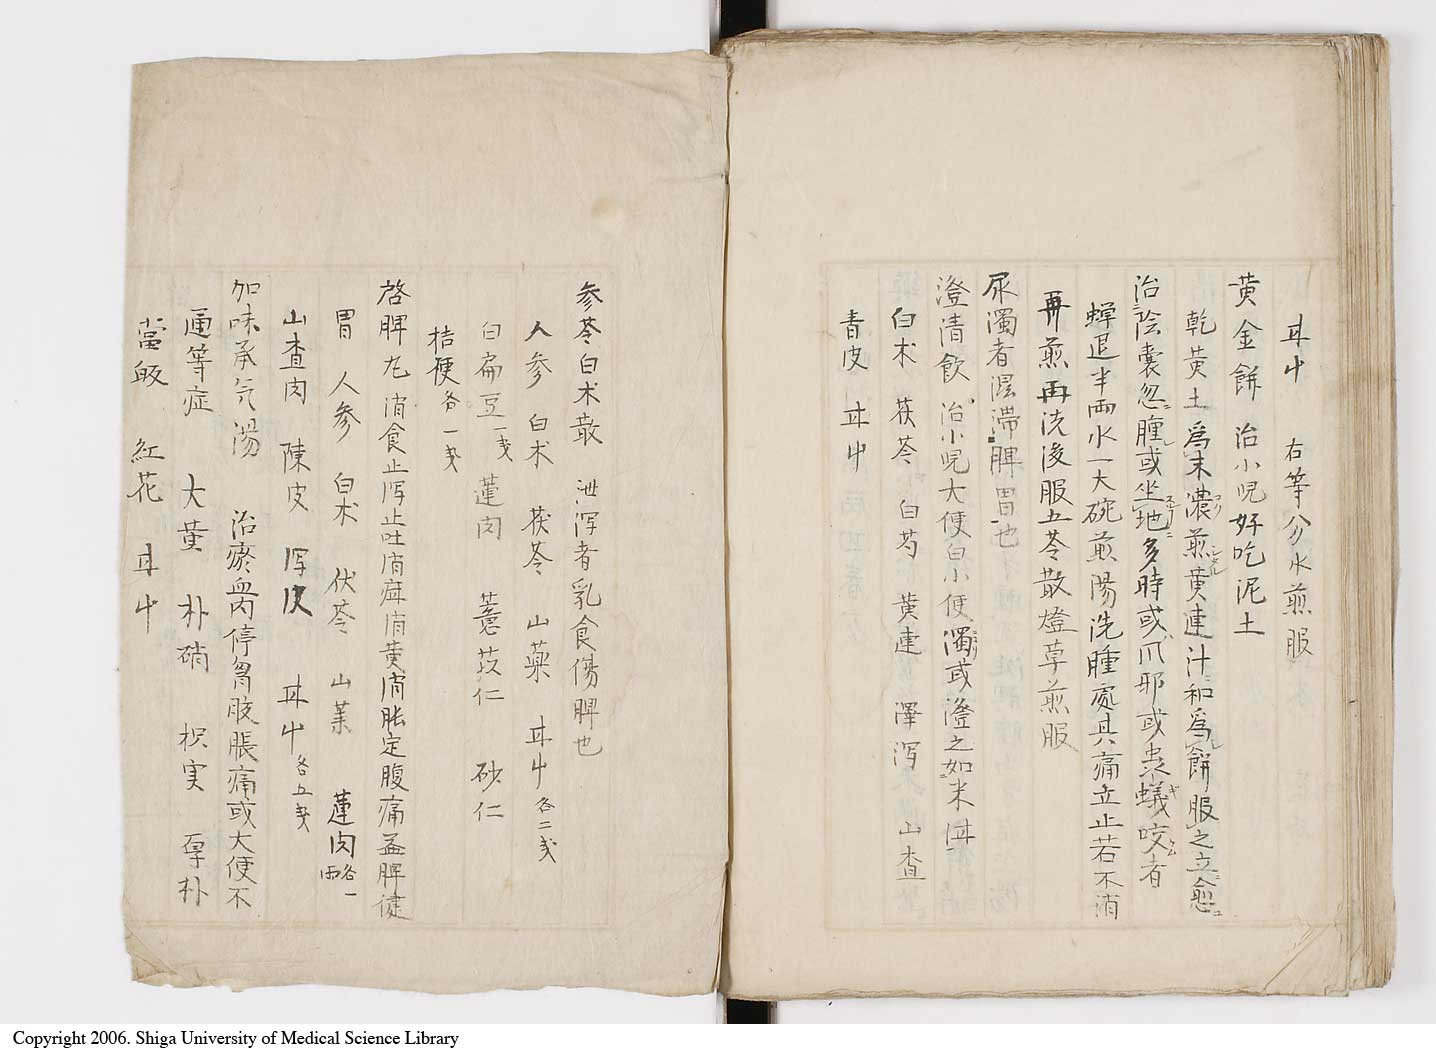 甘艸　右等分水煎服
黄金餅　治小児好吃泥土
乾黄土為末濃煎黄連汁和為餅服之立愈
治陰嚢忽腫或坐地多時或爪邪或虫蟻咬者
蟬退半両水一大碗煎湯洗腫處其痛立止若不消
再煎再洗後服五苓散燈草煎服
尿濁者湿滞脾胃也
澄清飲　治小児大便白小便濁或澄之如米泔
白朮　茯苓　白芍　黄連　澤瀉　山査
青皮　甘艸
参苓白朮散　泄瀉者乳食傷脾也
人参　白朮　茯苓　山藥　甘艸各二戋
白扁豆一戋　蓮肉　薏苡仁　砂仁
桔梗各一戋
啓脾丸　消食止瀉止吐消疳消黄消胀定腹痛益脾健
胃　人参　白朮　伏苓　山薬　蓮肉各一両
山査肉　陳皮　澤瀉　甘艸各五戋
加味承气湯　治瘀血内停胷腹脹痛或大便不
通等症　大黄　朴硝　枳実　厚朴
當皈　紅花　甘艸
Copyright 2006. Shiga University of Medical Science Library